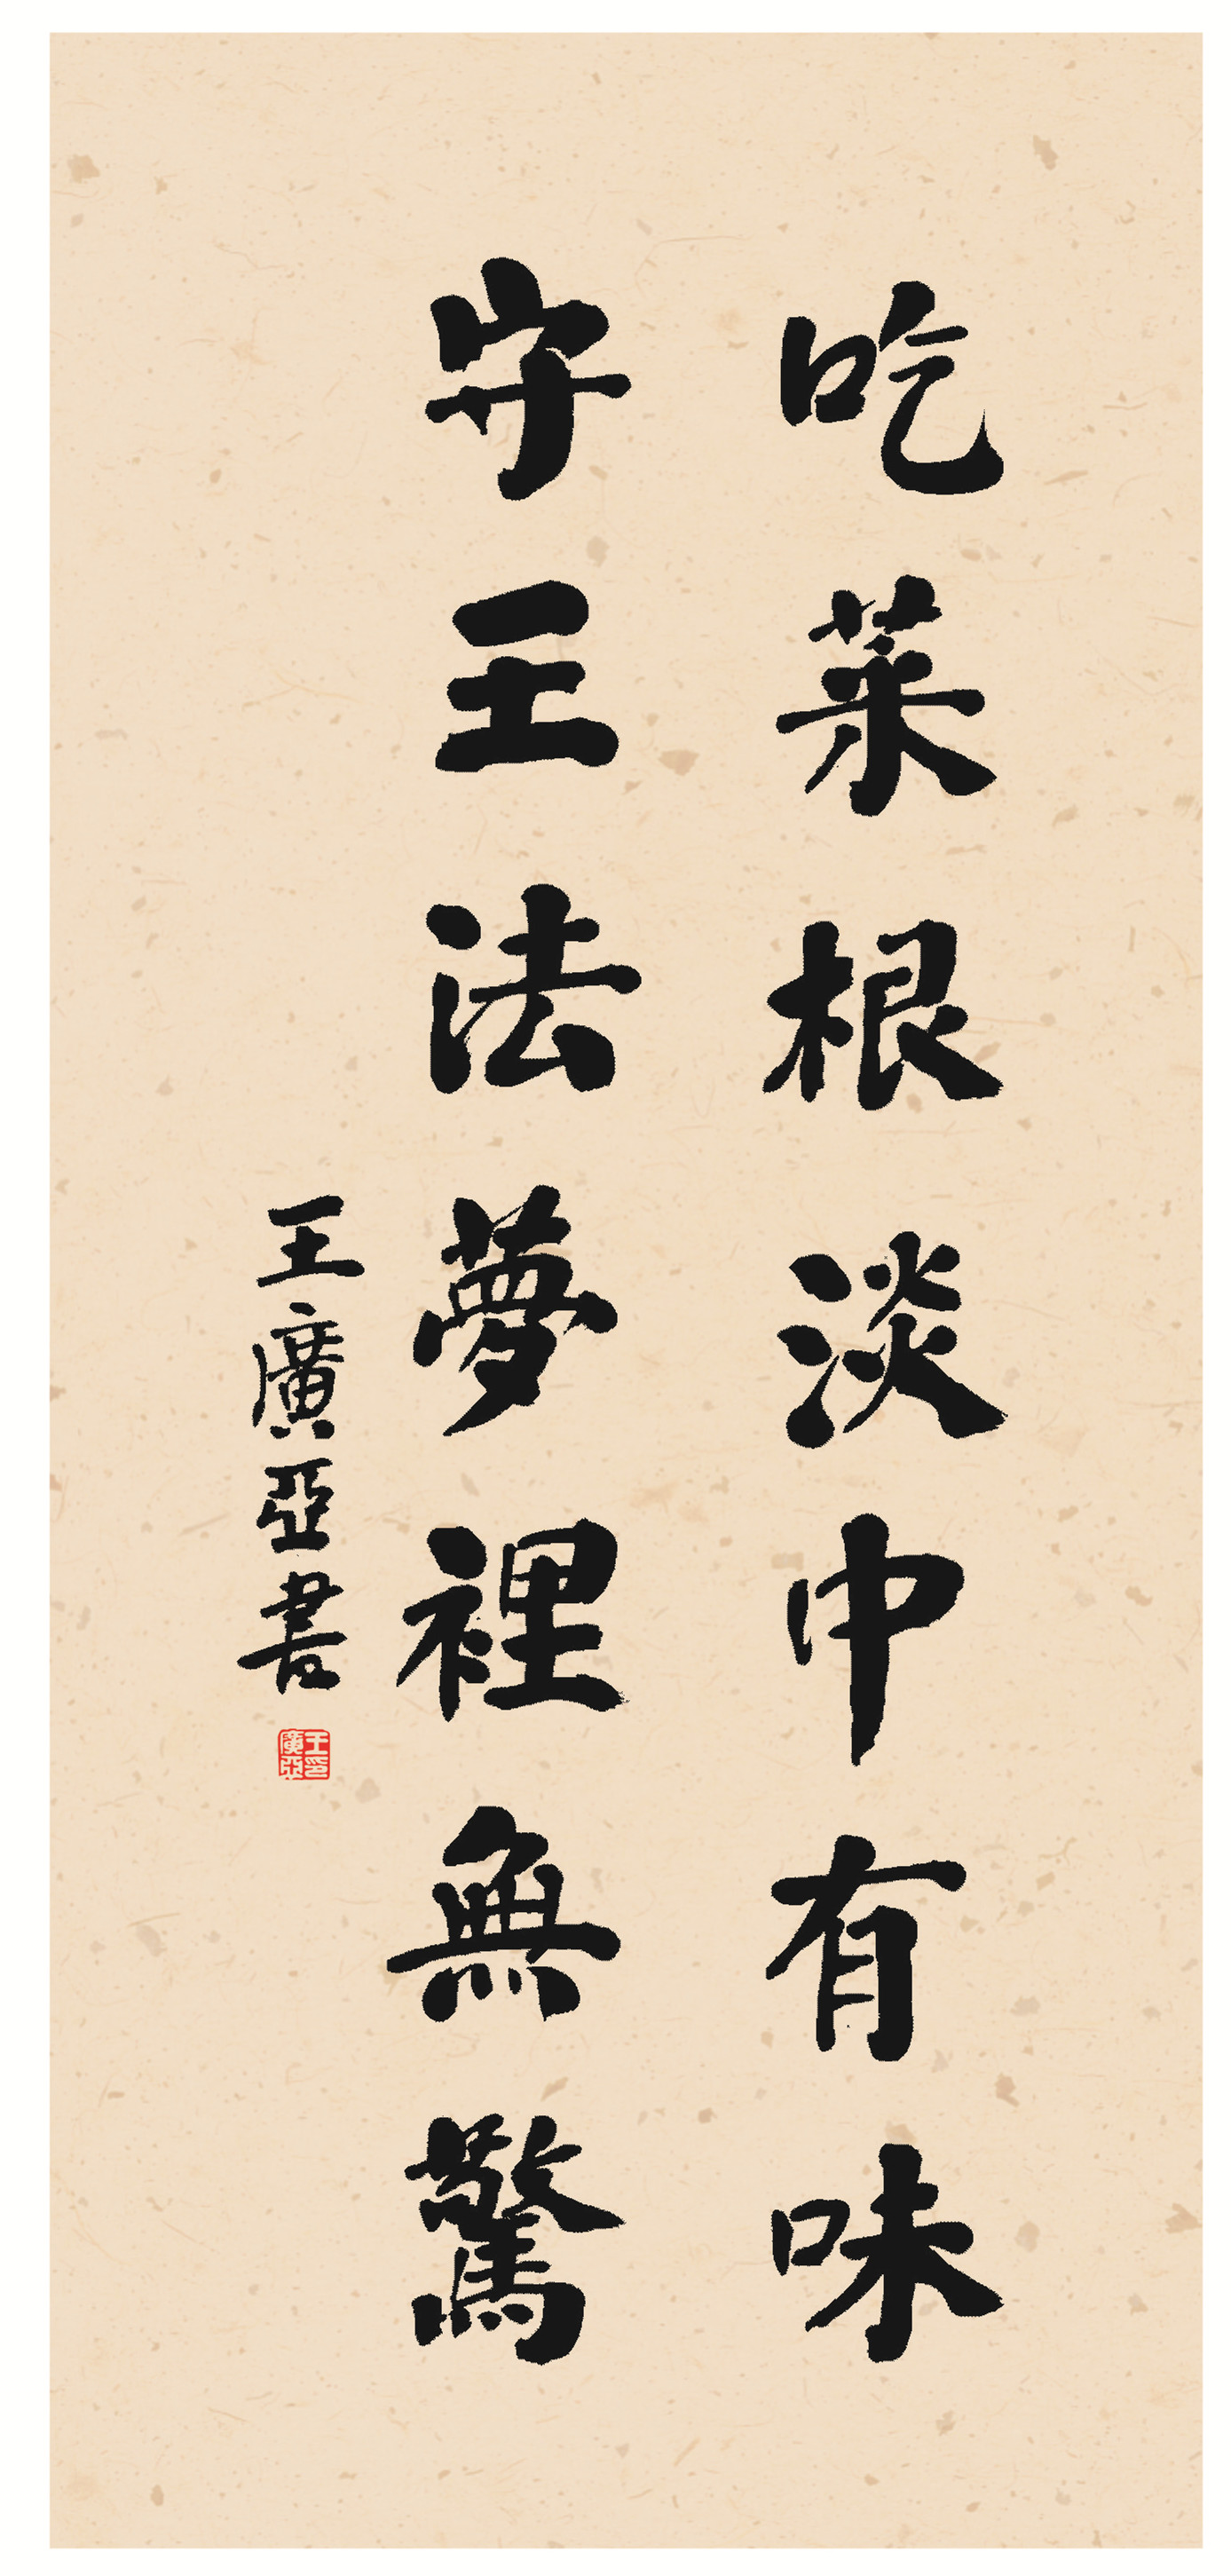 吃菜根淡中有味
守王法夢裡無驚
王廣亞書
王廣亞印